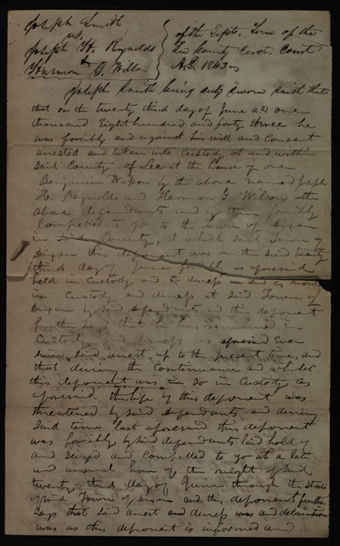 Joseph Smith
vs.
Joseph H. Reynolds
& Harmon G. Wilson
of the Sept. Term of the
Lee County Circt. Court
A.D. 1843
Joseph Smith being duly sworn saith that
that on the twenty third day of June AD one
thousand Eight hundred and forty three he
was forcibly and against his will and consent
arrested and taken into custody at and within
said County of Lee at the
of the above named Joseph
H. Reynolds and Harmon G. Wilson the
above defendants and
compelled to go to the Town of Dixon
in County, at which said Town of
Dixon this deponent was on the said twenty
third day of June as aforesaid
held in custody and duress
in custody and duress at said Town of
Dixon by said defendants and the deponent
further says that he remained in
custody and duress as aforesaid Ever
since said arrest up to the present time, and
that during the continuance and whilst
this deponent was so in custody as
aforesaid the life of this deponent was
threatened by said defendants and during
said times last aforesaid this deponent
was forcibly by said defendants laid hold of
and seized and compelled to go at a late
and unusual hour of the night of said
twenty third day of June through the streets
of said Town of Dixon and this deponent further
says that said arrest and duress was and detention
was as this deponent is informed and